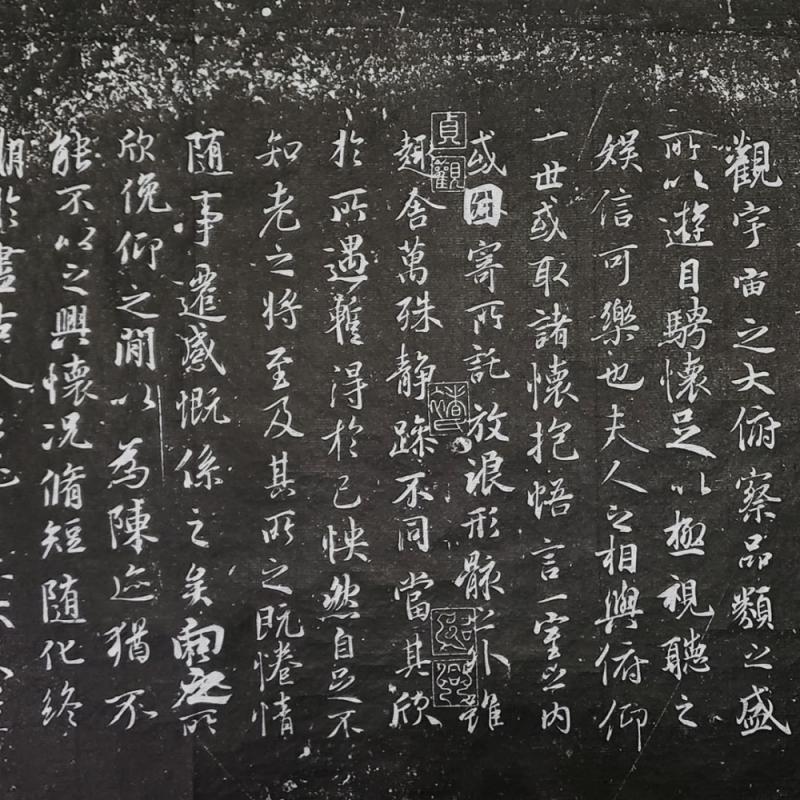 觀宇宙之大俯察品類之盛
所以遊目騁懷足以極視聽之
娛信可樂也夫人之相與俯仰
一世或取諸懷抱悟言一室之內
或因寄所託放浪形骸之外雖
趣舍萬殊静躁不同當其欣
於所遇暫得於己怏然自足不
知老之將至及其所之既惓情
随事遷感慨係之矣向之所
欣俛仰之閒以為陳迹猶不
能不以之興懷况脩短随化終
期於盡古人
貞觀